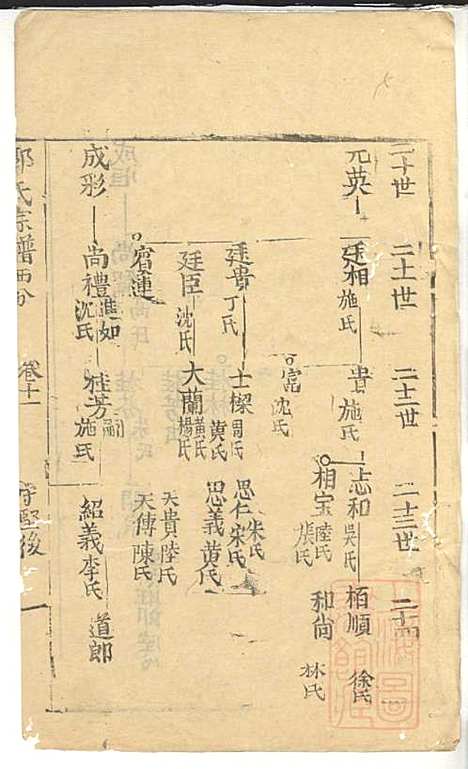 二十世 二十一世 二十二世 二十三世 二十
元英 廷相 施氏 貴 施氏 志和 吳氏 栢順 徐氏
富 沈氏 相宝 陸氏 張氏 和尚 林氏
廷貴 丁氏 士樑 周氏 黃氏 思仁 朱氏 宋氏
廷臣 沈氏 大蘭 黃氏 楊氏 思義 黄氏
天貴 陸氏
天傳 陳氏
宿蓮
成彩 尚禮 進如 沈氏 桂芳 嗣 施氏 紹義 李氏 道郎
氏宗譜西分 卷十一 守堅後 一